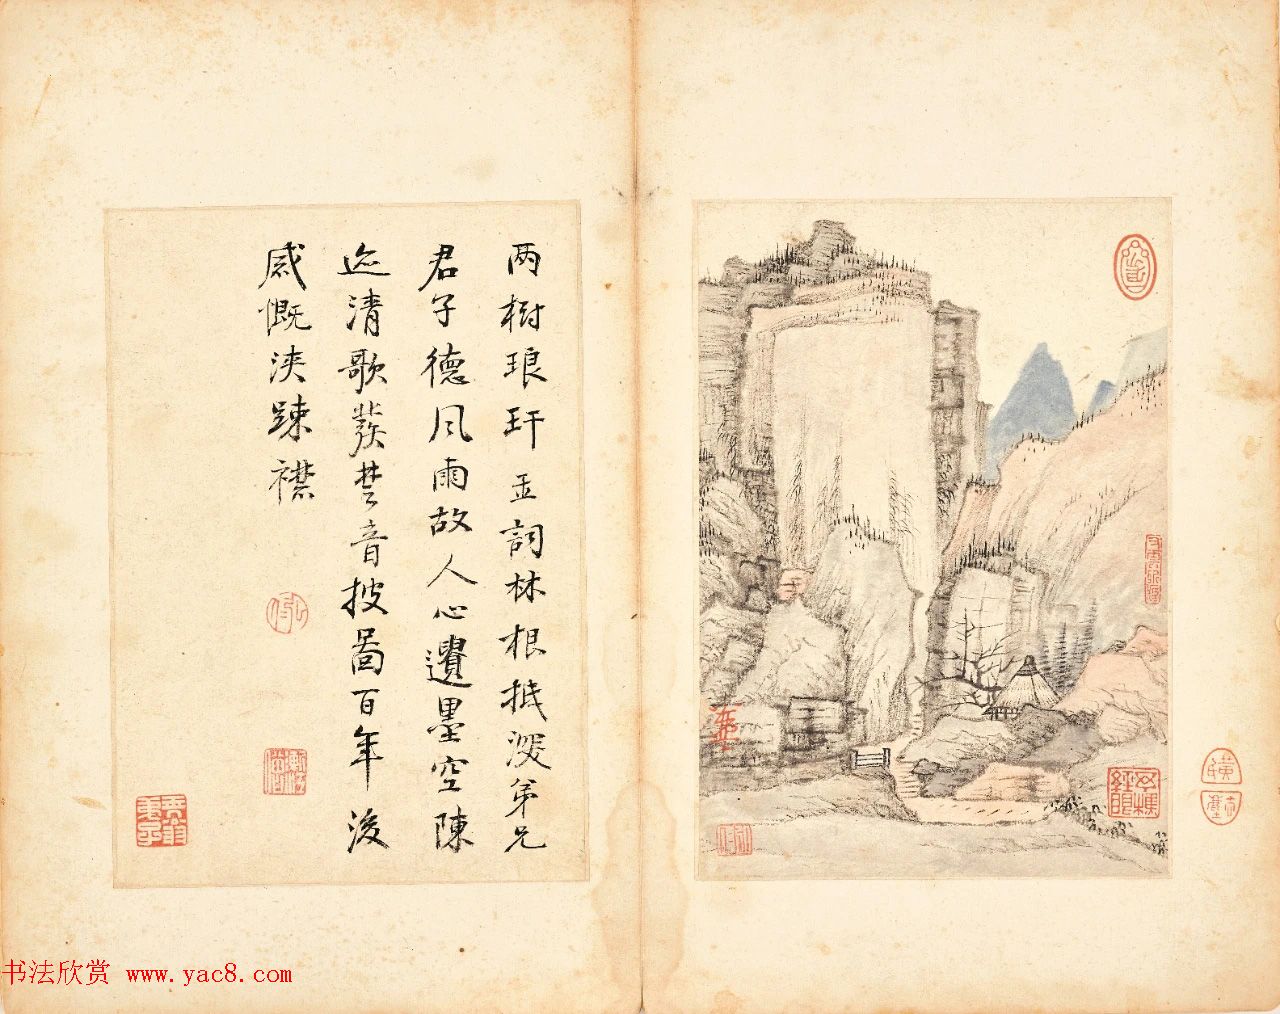 两树琅玕玉词林根抵深弟兄
君子德风雨故人心遗墨空陳
迹清歌發楚音披圖百年後
感慨淚踈襟
书法欣赏 www.yac8.com